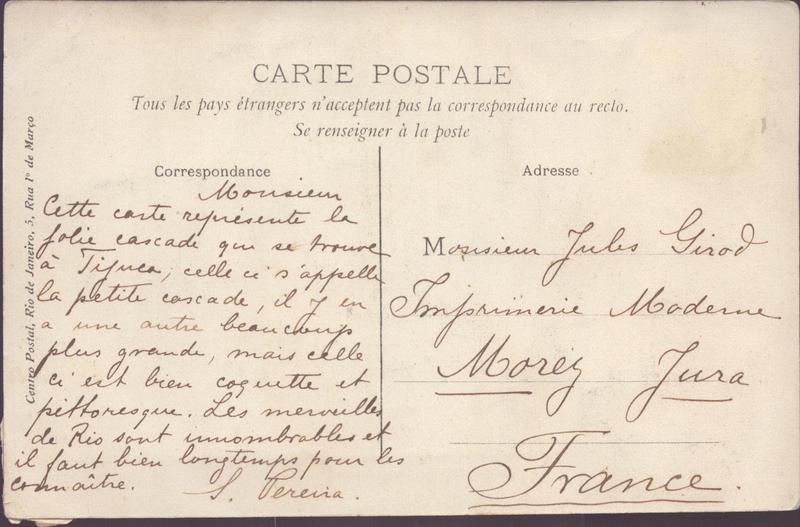 CARTE POSTALE
Tous les pays étrangers n'acceptent pas la correspondance au recto.
Se renseigner à la poste
Correspondance
Monsieur
Cette carte représente la
jolie cascade qui se trouve
à Tijuca, celle ci s'appelle
la petite cascade, il y en
a une autre beaucoup
plus grande, mais celle
ci est bien coquette et
pittoresque. Les merveilles
de Rio sont innombrables et
il faut bien longtemps pour les
connaître.
S. Pereira.
Adresse
Monsieur Jules Girod
Imprimerie Moderne
Morez Jura
France.
Centro Postal, Rio de Janeiro, 5, Rua 1º de Março